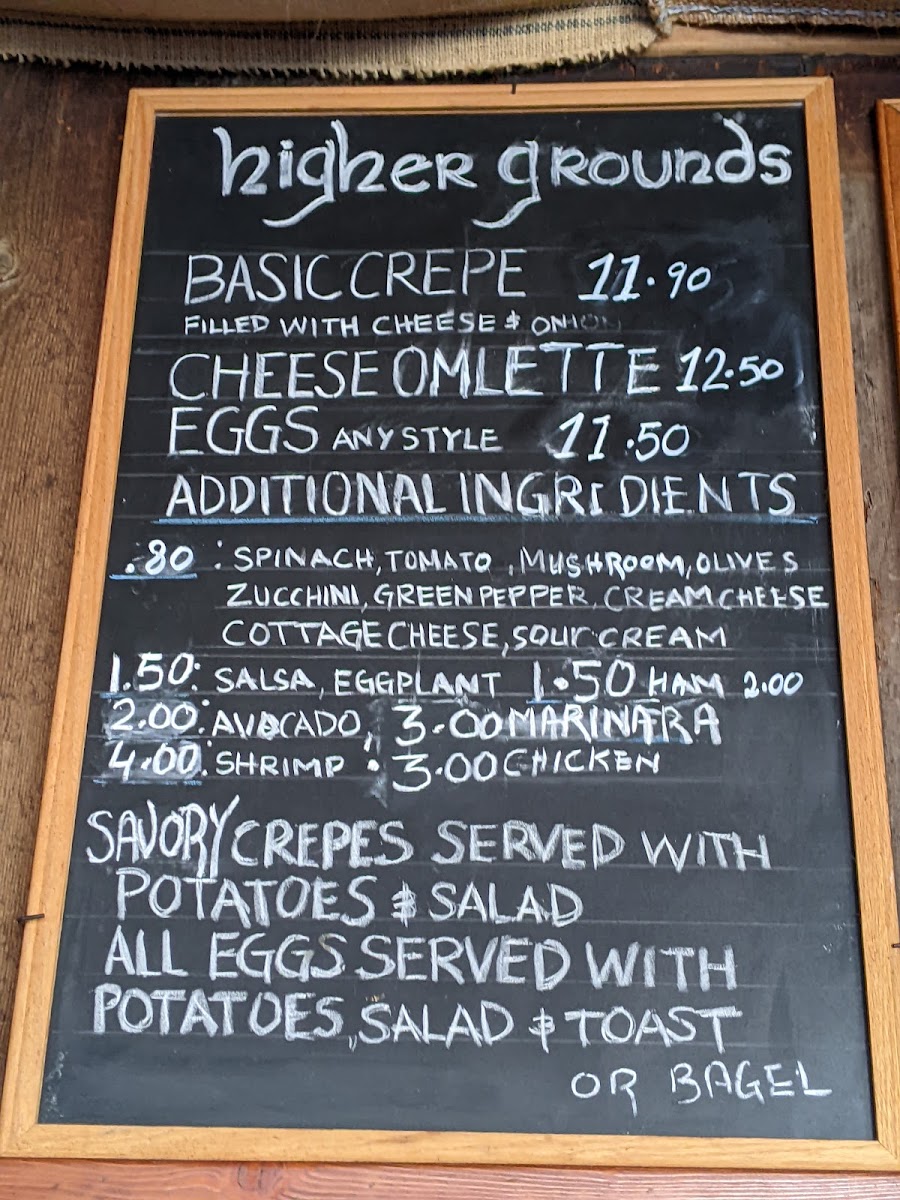 higher grounds
BASIC CREPE 11.90
FILLED WITH CHEESE & ONION
CHEESE OMLETTE 12.50
EGGS ANY STYLE 11.50
ADDITIONAL INGRIDIENTS
.80 : SPINACH, TOMATO, MUSHROOM, OLIVES
ZUCCHINI, GREEN PEPPER, CREAM CHEESE
COTTAGE CHEESE, SOUR CREAM
1.50: SALSA, EGGPLANT 1.50 HAM 2.00
2.00: AVACADO, 3.00 MARINARA
4.00: SHRIMP . 3.00 CHICKEN
SAVORY CREPES SERVED WITH
POTATOES & SALAD
ALL EGGS SERVED WITH
POTATOES, SALAD & TOAST
OR BAGEL